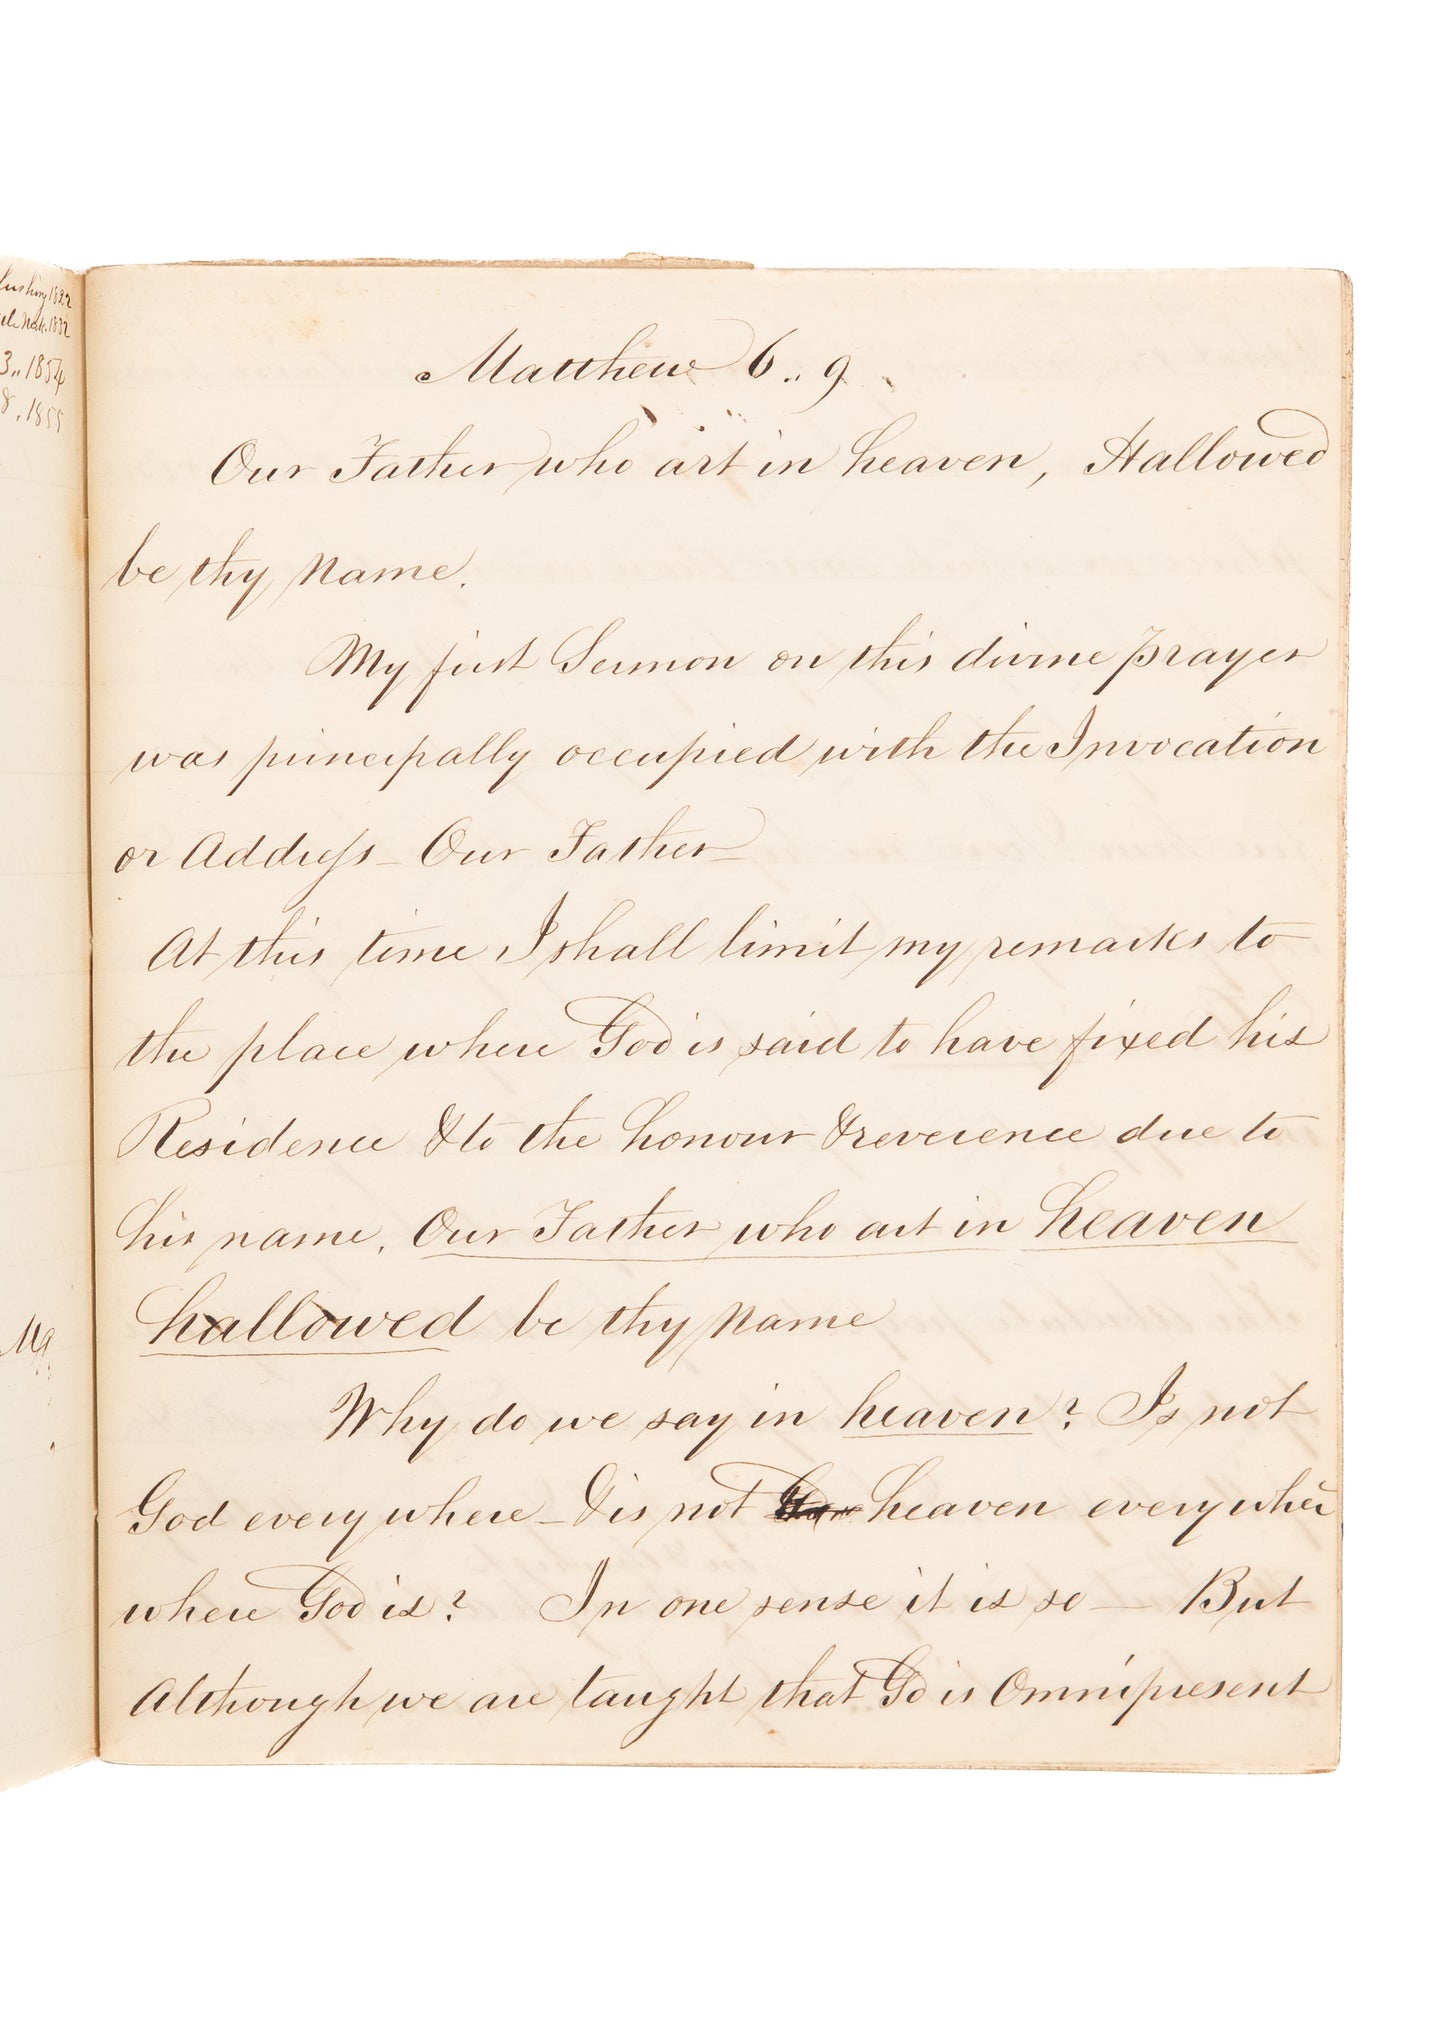 1832
Neck. 1832
3,, 1854
8, 1855
Matthew 6,, 9
Our Father who art in heaven, Hallowed
be thy name.
My first Sermon on this divine prayer
was principally occupied with the Invocation
or Address - Our Father -
At this time I shall limit my remarks to
the place where God is said to have fixed his
Residence & to the honour & reverence due to
his name. Our Father who art in heaven
hallowed be thy name
Why do we say in heaven? Is not
God everywhere - & is not heaven everywher
where God is? In one sense it is so — But
Although we are taught that God is Omnipresent